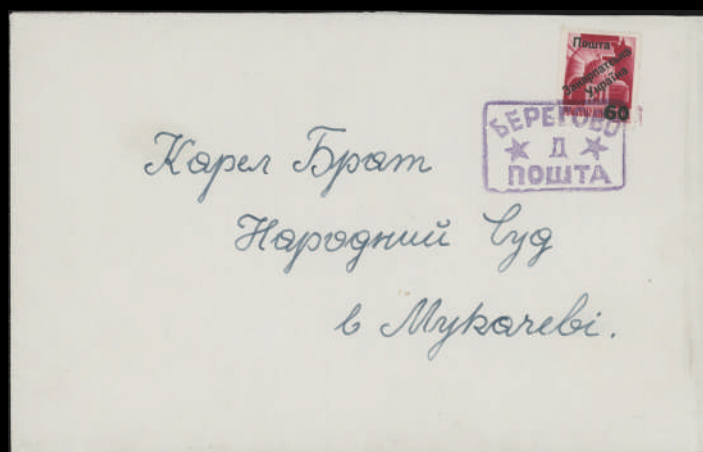 Пошта
Закарпатська
Україна
60
БЕРЕГОВО
Д
ПОШТА
Карел Брат
Народний Суд
в Мукачеві.